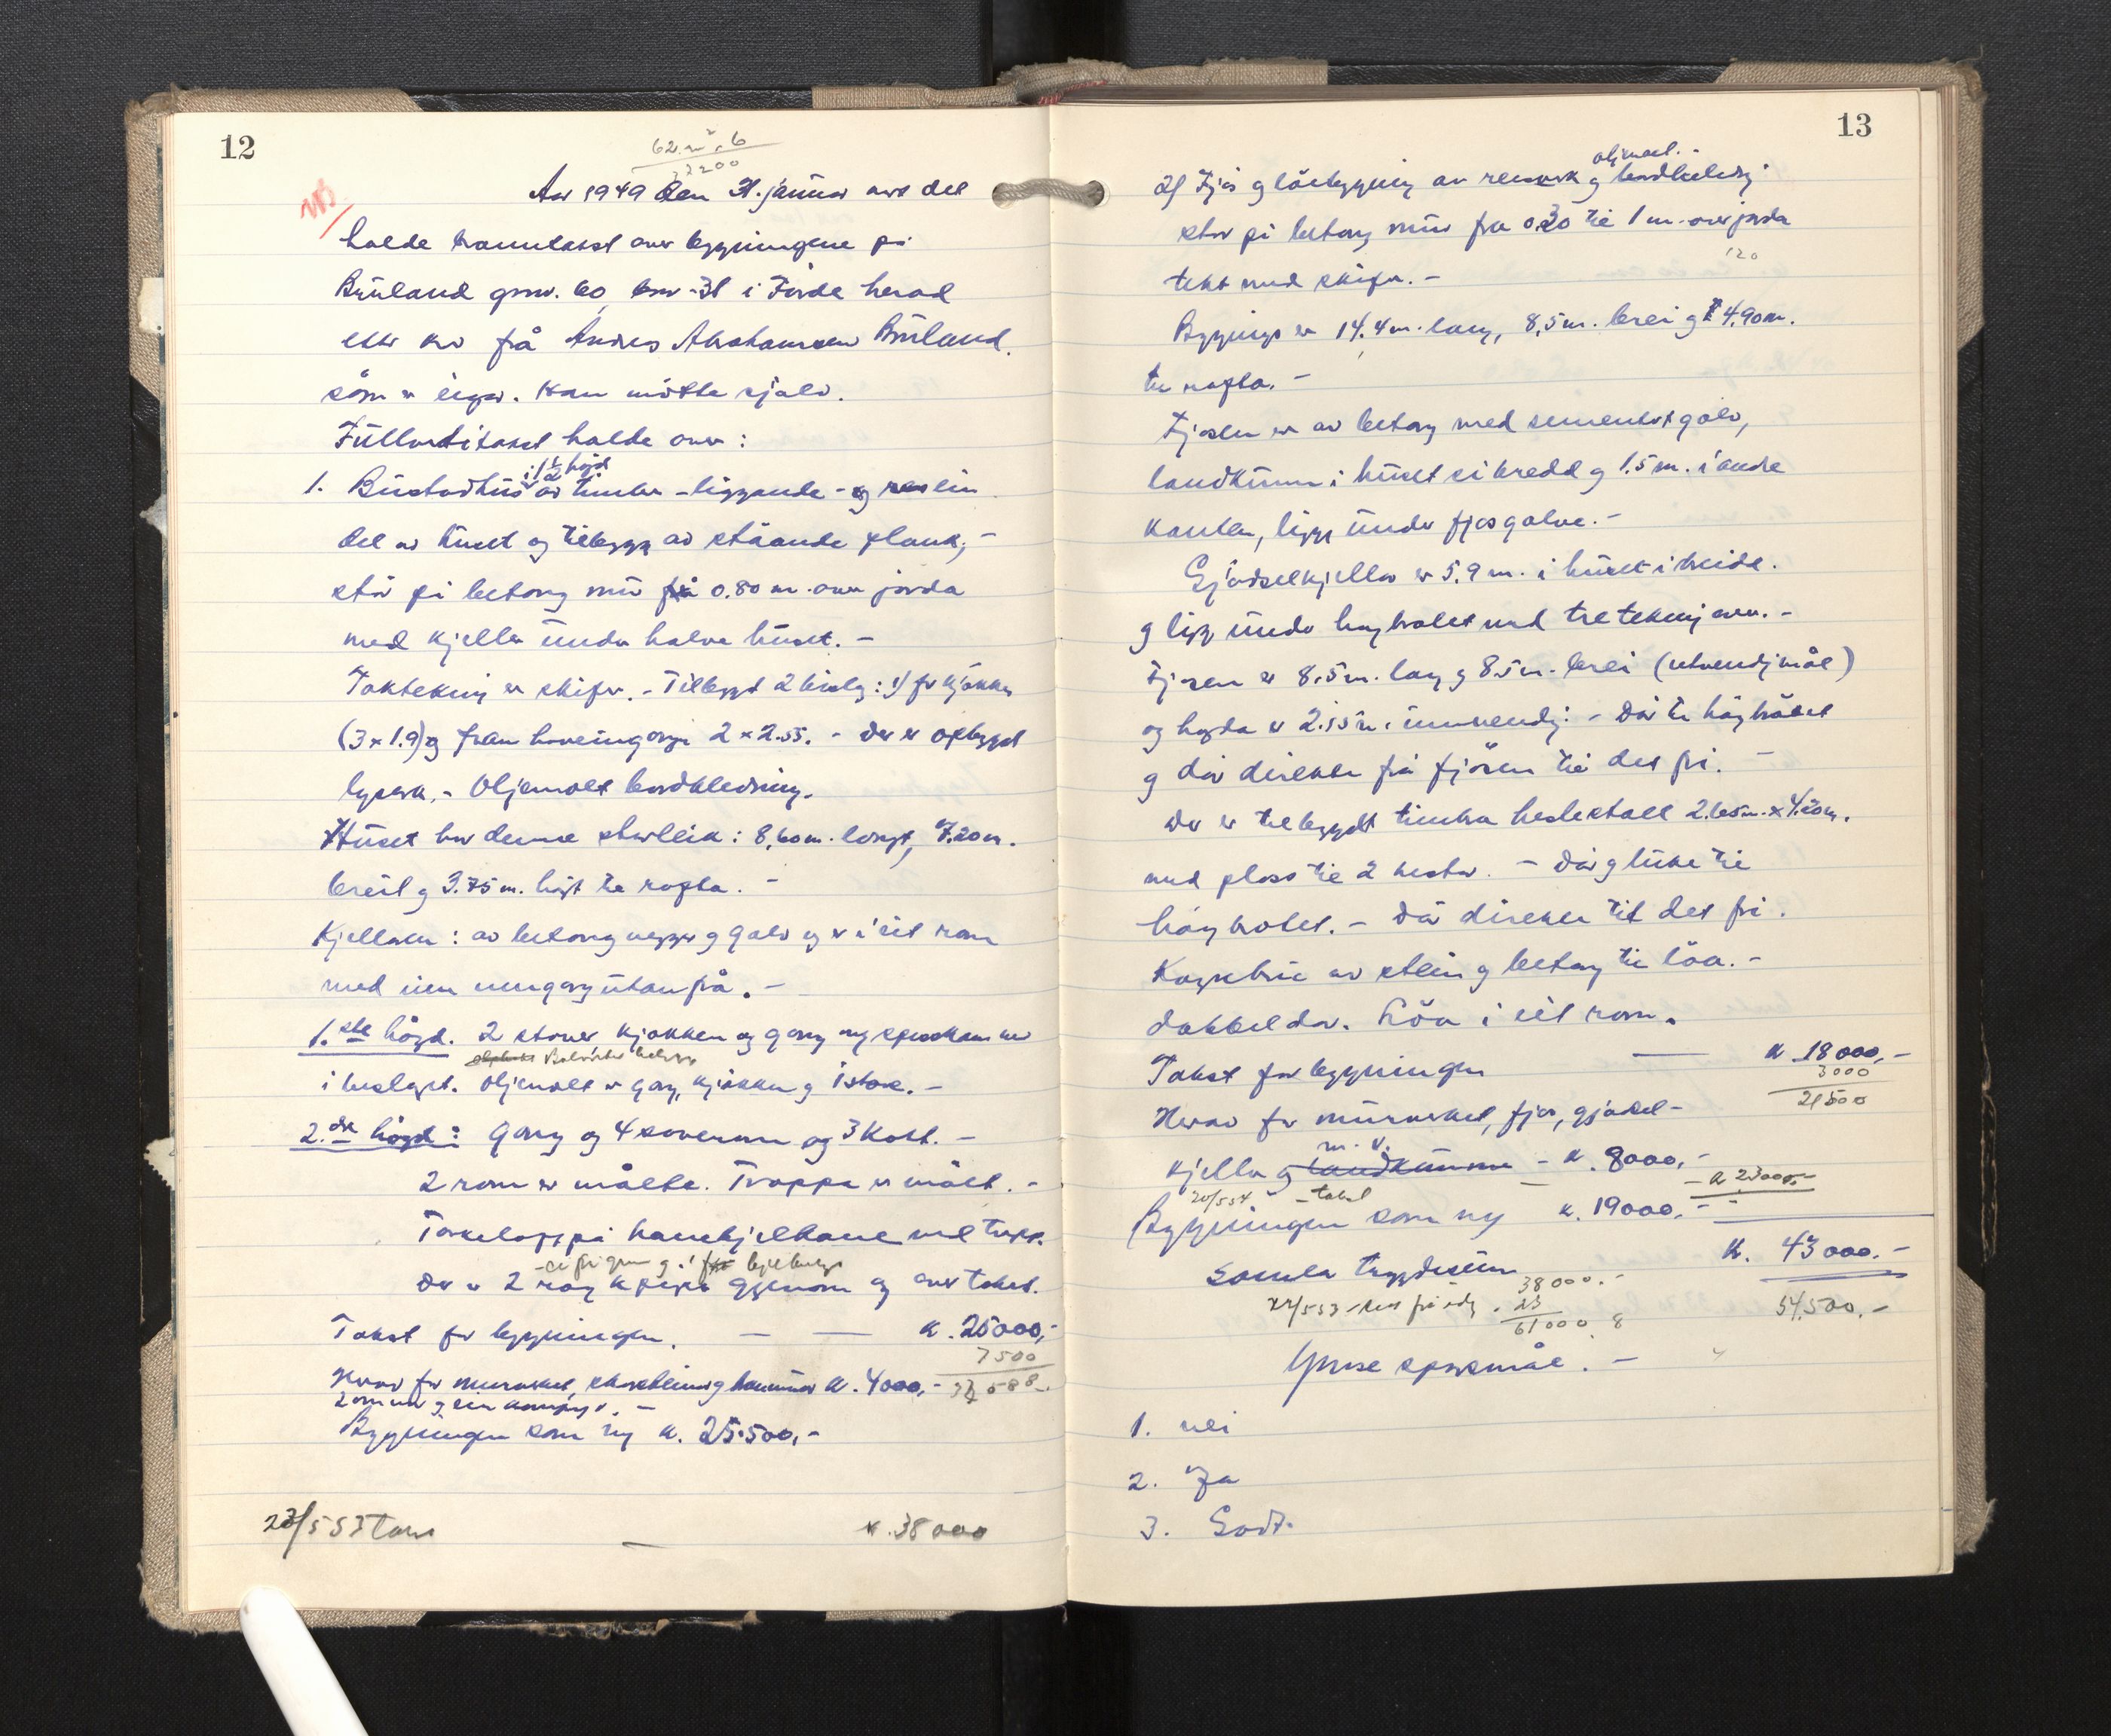 12
Aar 1949 den 31. januar vart det
halde branntakst over bygningene på
Bruland gnr. 60, bnr. 31 i Førde herad
etter krav frå Andres Abrahamsen Bruland.
som er eigar. Han møtte sjølv.
Fullverditakst halde over:
i 1 1/2 høgd
1. Bustadhus av timber - liggande - og ein
del av huset og tilbygg av ståande plank, -
står på betong mur 0.80 m. over jorda
med kjeller under halve huset. -
Taktekking er skifer. - Tilbygd 2 bislag: 1) for kjøkken
(3 x 1.9) og framhoveingang 2 x 2.55. - Der er opbygd
lysark. - Oljemalt bordkledning.
Huset har denne storleik: 8,60 m. langt, 7.20 m.
breit og 3.75 m. høgt til rafta. -
Kjellaren: av betong vegger og golv og er i eit rom
med inngang utanfrå. -
1.ste høgd. 2 stover kjøkken og gang og speiskammer
i bislaget. Oljemalt er gang, kjøkken og 1 stove. -
2.dre høgd: gang og 4 soverom og 3 kott. -
2 rom er målte. Troppa er målt. -
på hanebjelkane med tropp.
Der er 2 røyk piper gjenom og over taket.
Takst for bygningen. — — k. 25000,-
7500
Herav for murverket, skorstein og k. 4000,-
Bygningen som ny k. 25.500,-
23/5 53 k. 38000
13
oljemalt. -
2) Fjøs og løebygning av reisverk og bordkledning
står på betong mur fra 0.30 til 1 m. over jorda
120
tekt med skifer. -
Bygningen er 14.4 m. lang, 8,5 m. brei og 4.90 m.
til rafta. -
Fjøsen er av betong med sementert golv,
landkum i huset si bredd og 1.5 m. i andre
kanten, ligg under fjøsgolve. -
Gjødselkjeller er 5.9 m. i huset i breide.
og ligg under høybolet med tretekking over. -
Fjøsen er 8.5 m. lang og 8.5 m. brei (utvendig mål)
og høgda er 2.15 m. innvendig: - Dør til høybolet
og dør direkte frå fjøsen til det fri. -
Der er tilbygdt timbra hestestall 2.65 m. x 4.20 m.
med plass til 2 hestar. - Dør og luke til
høybolet. - Dør direkte til det fri.
Køyrebru av stein og betong til løa. -
Løa i eit rom.
Takst for bygningen — k. 18000,-
3000
21500
Herav for murverket, fjøs, gjødsel-
m. v.
kjeller og landkumme - k. 8000,-
k. 23000,-
Bygningen som ny k. 19000,-
Samla trygdesum k. 43000.-
38000.-
23
61000
54.500,-
Ymse spørsmål. -
1. nei
2. Ja
3. Godt.